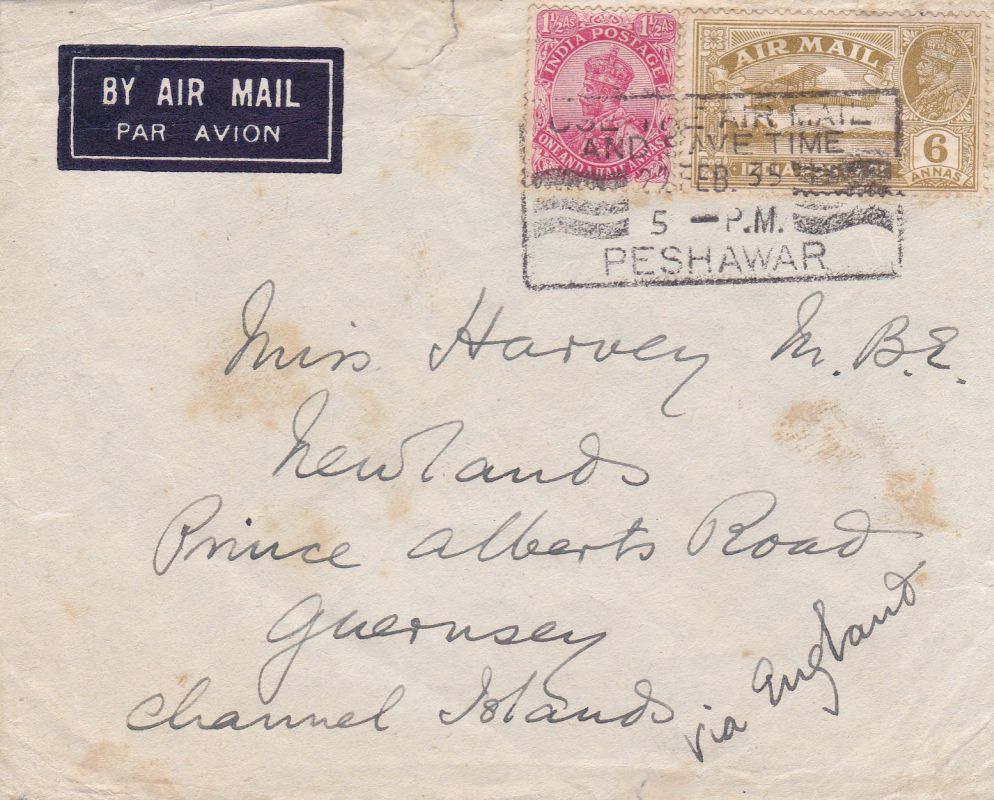 BY AIR MAIL
PAR AVION
1½As 1½As
INDIA POSTAGE
ONE AND A HALF ANNAS
AIR MAIL
6
ANNAS
USE THE AIR MAIL
AND SAVE TIME
FEB. 35
5 – P.M.
PESHAWAR
Miss Harvey M.B.E.
Newlands
Prince Alberts Road
Guernsey
Channel Islands
via England